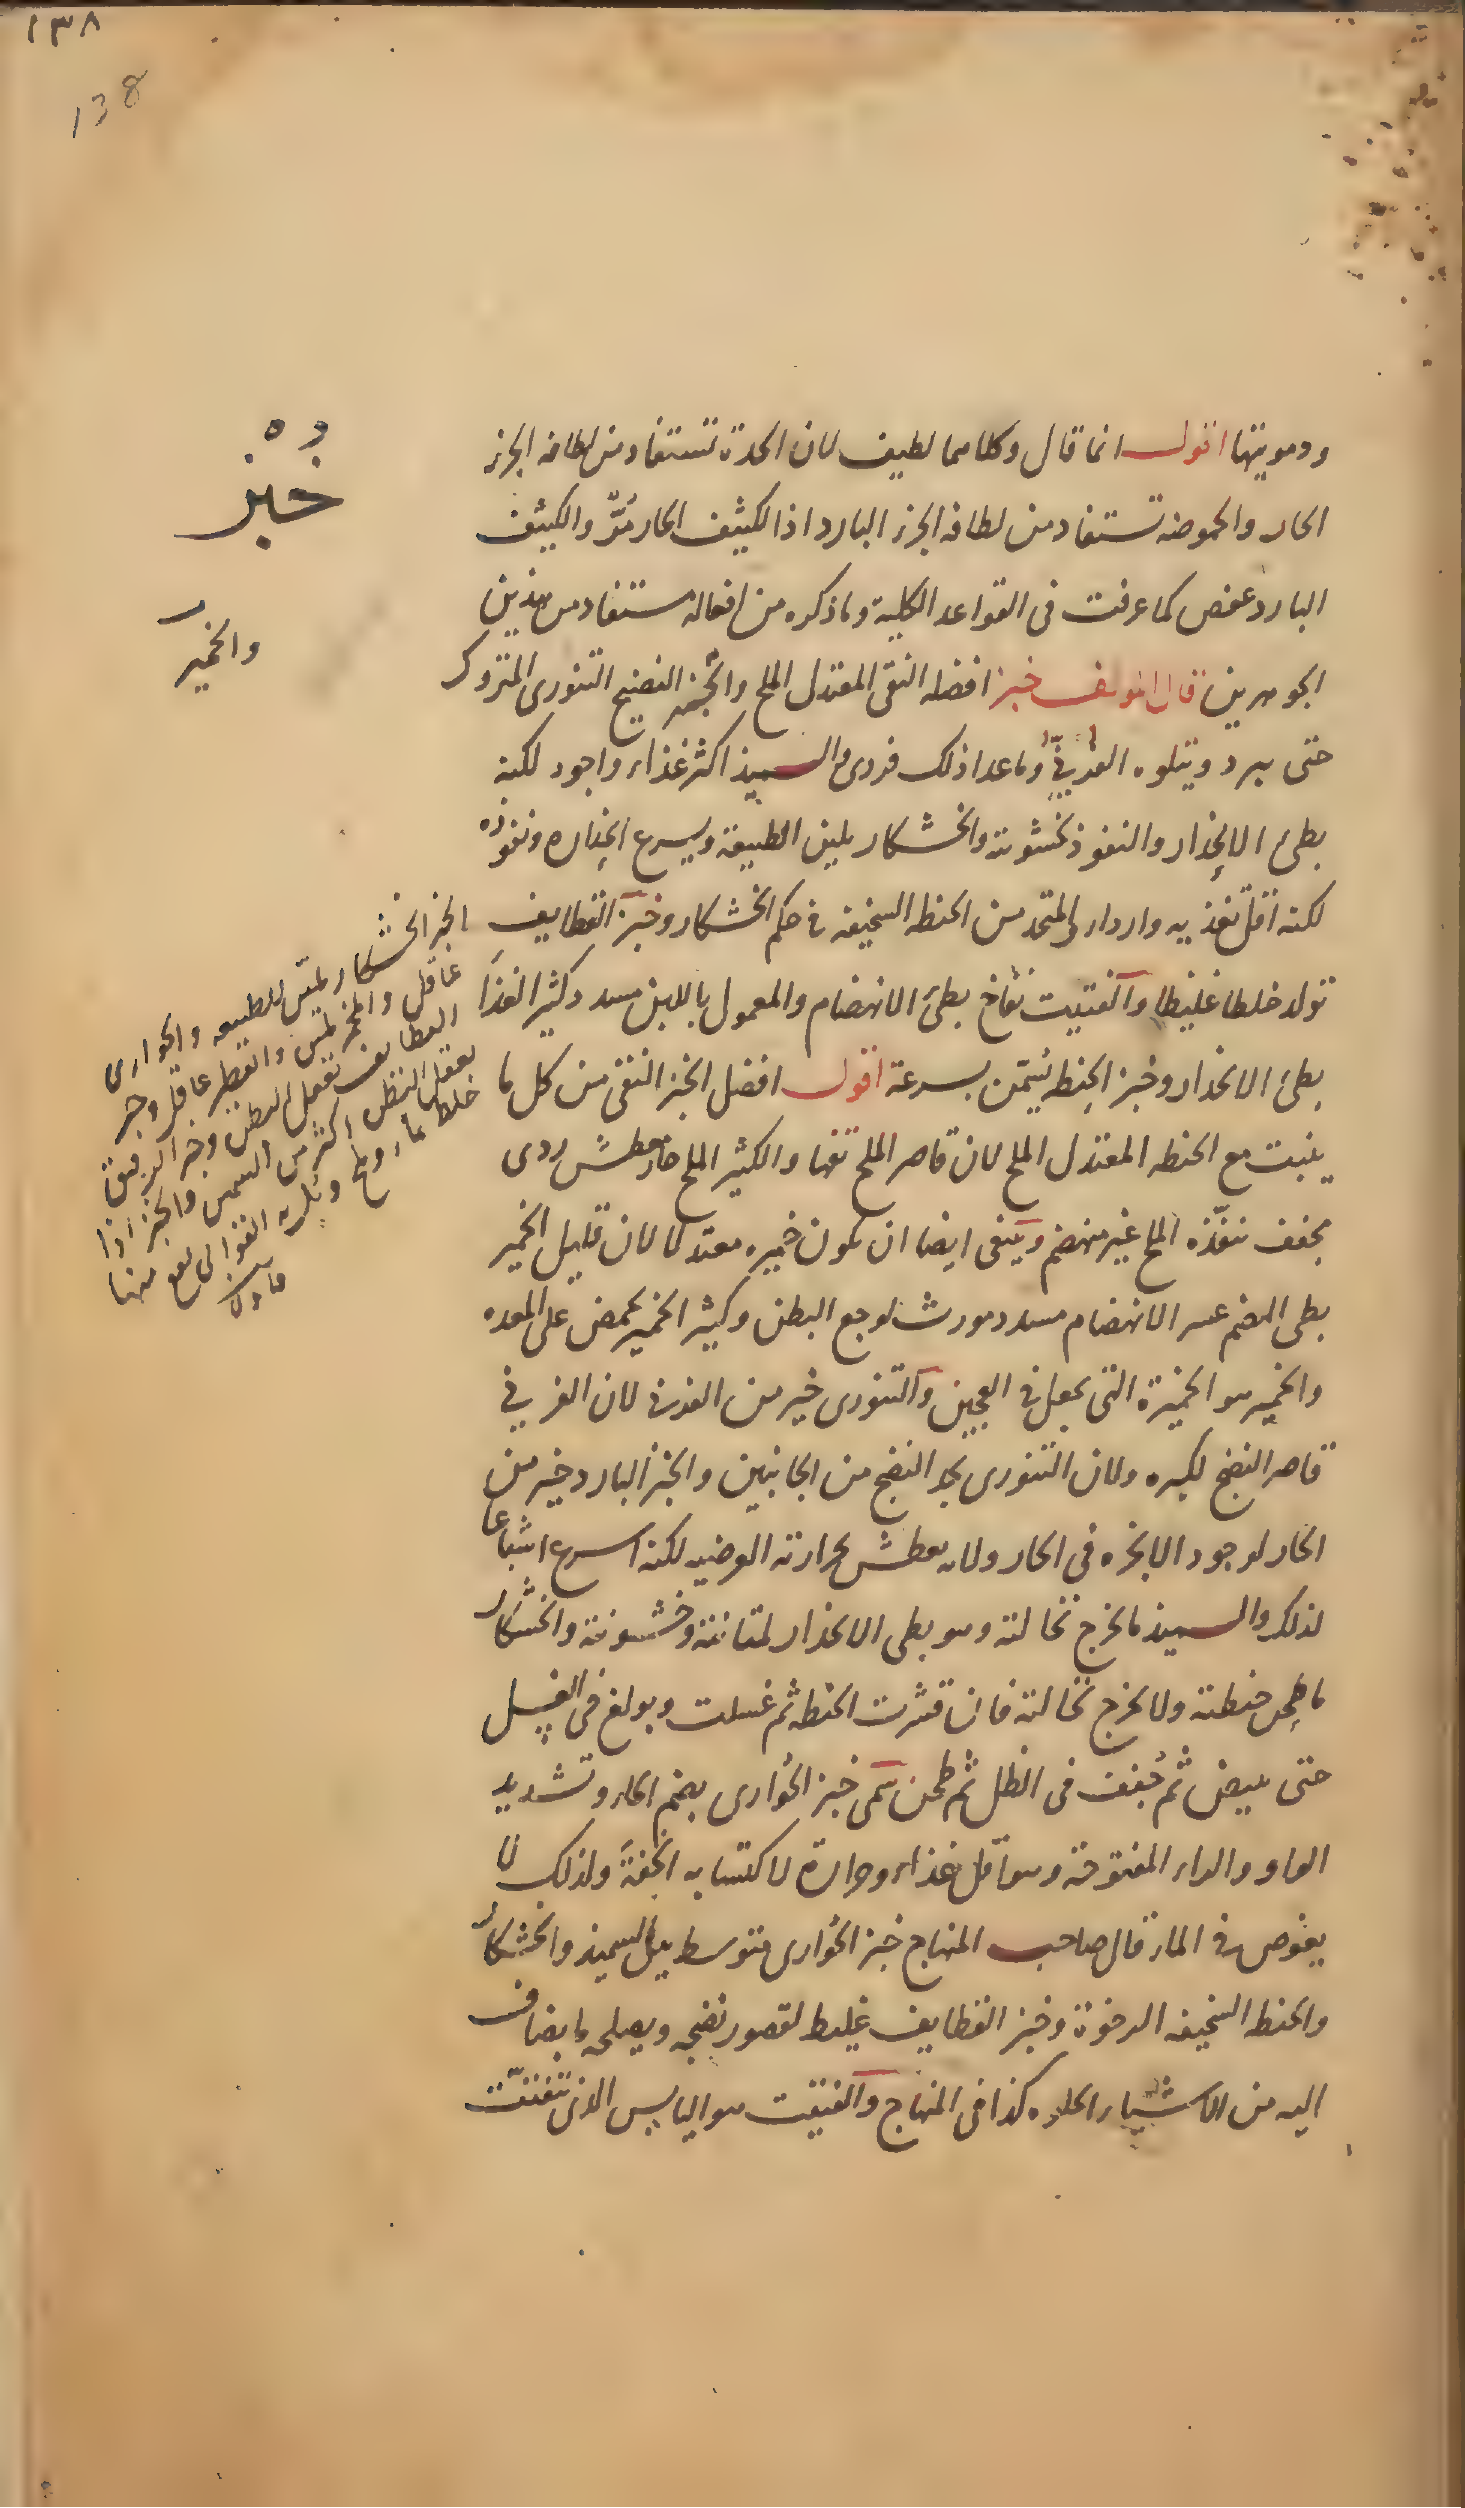 ١٣٨
138
ودمويتها اقول انما قال وكلاهما لطيف لان الحدة تستفاد من لطافة الجزء
الحار والحموضة تستفاد من لطافة الجزء البارد اذ الكثيف الحار مُرّ والكثيف
البارد عفص كما عرفت فى القواعد الكلية وما ذكره من افعاله مستفاد من هذين
الجوهرين قال المؤلف خبز افضله النقى المعتدل الملح والخمير النضيج التنورى المتروك
حتى يبرد ويتلوه الفرنى وما عدا ذلك فردى والسميذ اكثر غذاء واجود لكنه
بطئ الانحدار والنفوذ لخشونته والخشكار يلين الطبيعة ويسرع انحداره ونفوذه
لكنه اقل تغذيه واردا والمتخذ من الحنطه السخيفه فى حكم الخشكار وخبز القطايف
تولد خلطا غليظا والفتيت نفاخ بطئ الانهضام والمعمول باللبن مسدد كثير الغذا
بطئ الانحدار وخبز الحنطه يُسَمّن بسرعة اقول افضل الخبز النقى من كل ما
ينبت مع الحنطه المعتدل الملح لان قاصر الملح تفها والكثير الملح حار معطش ردى
مجفف تنفّذه الملح غير منهضم وينبغى ايضا ان يكون خميره معتدلا لان قليل الخمير
بطى الهضم عسر الانهضام مسدد مورث لوجع البطن وكثير الخمير يحمض على المعده
والخمير هو الخميرة التى يجعل فى العجين والتنورى خير من الفرنى لان الفرنى
قاصر النضج لكبره ولان التنورى يجد النضج من الجانبين والخبز البارد خير من
الحار لوجود الابخره فى الحار ولانه يعطش بحرارته العرضيه لكنه اسرع اشباعا
لذلك والسميذ ما يخرج نخالته وهو بطى الانحدار لمتانته وخشونته والخشكار
ما طحن حنطته ولا يخرج نخالته فان قشرت الحنطه ثم غسلت وبولغ فى الغسل
حتى يبيض ثم جُففت فى الظل ثم طحن سمى خبز الحُوارى بضم الحاء وتشديد
الواو والراء المفتوحة وهو اقل غذاء وحرارة لاكتسابه الخفةَ ولذلك لا
يغوص فى الماء قال صاحب المنهاج خبز الحُوارى متوسط بين السميذ والخشكار
والحنطة السخيفه الرخوة وخبز القطايف غليظ لقصور نضجه ويصلحه ما يضاف
اليه من الاشياء الحلوه كذا فى المنهاج والفتيت هو اليابس الذى تتفتّت
خُبْز
والخمير
الخبز الخشكار يليّن الطبيعه والحوارى
عاقل والمخمر يلين والفطير عاقل وخبز
القطايف تعقل البطن وخبز الدقيق
يعقل البطن اكثر من السميد والخبز اذا
خلط بماء وملح